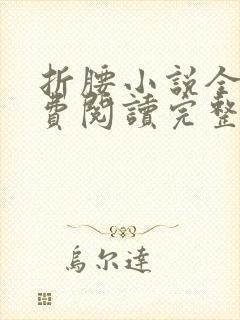 折腰小說全
費閱讀完整
烏尔達